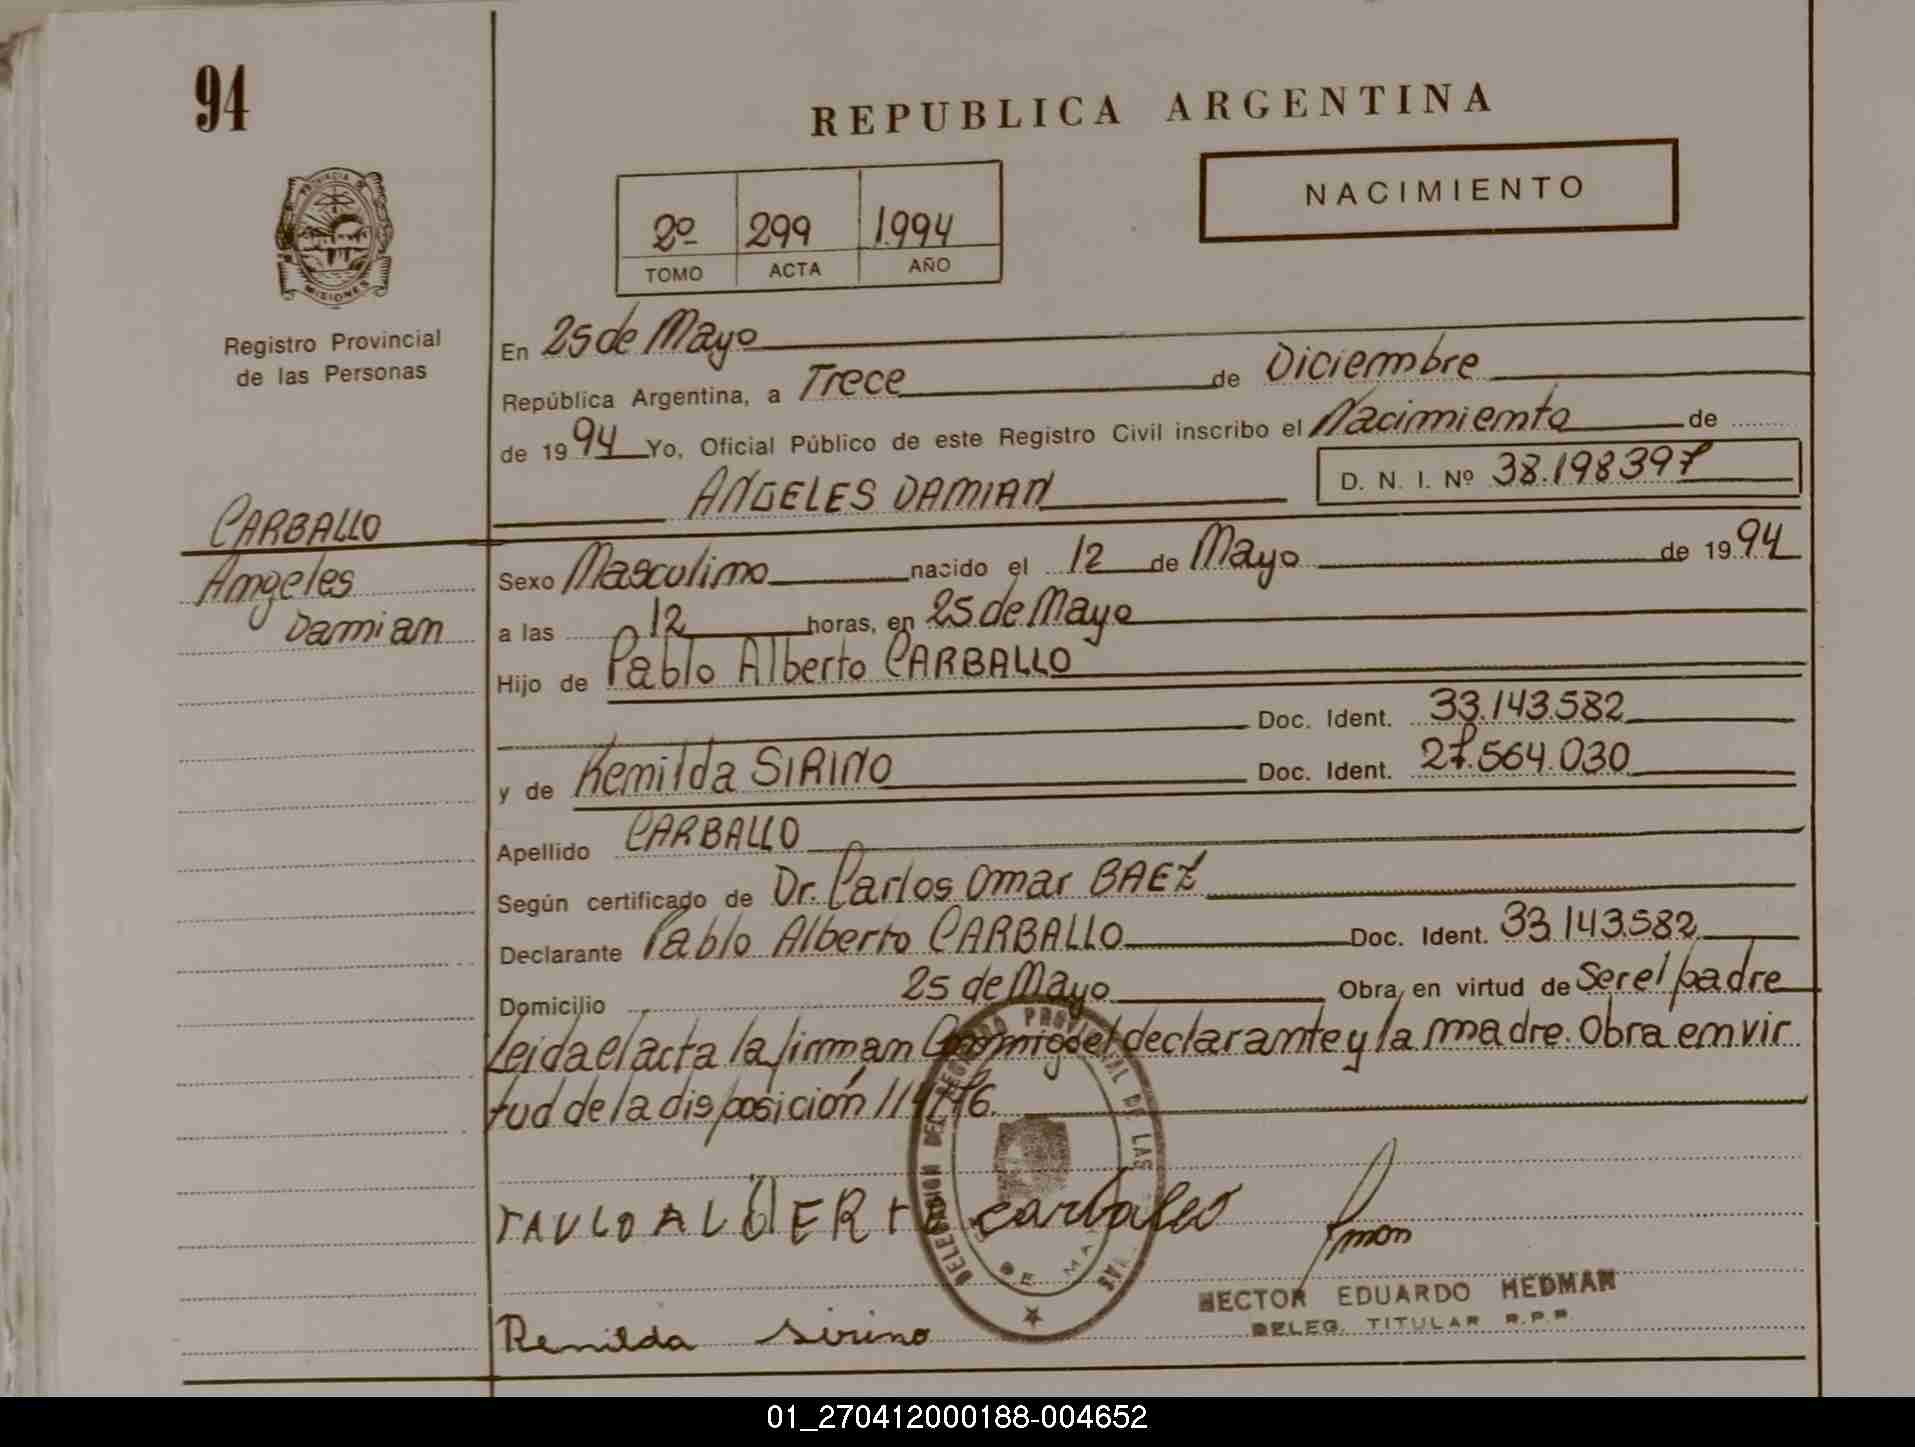 94
REPUBLICA ARGENTINA
NACIMIENTO
2º 299 1.994
TOMO ACTA AÑO
PROVINCIA DE
MISIONES
Registro Provincial
de las Personas
En 25 de Mayo
República Argentina, a Trece de Diciembre
de 1994 Yo, Oficial Público de este Registro Civil inscribo el Nacimiento de
ANGELES DAMIAN D. N. I. Nº 38.198397
CARBALLO
Angeles
Damian
Sexo Masculino nacido el 12 de Mayo de 1994
a las 12 horas, en 25 de Mayo
Hijo de Pablo Alberto CARBALLO
Doc. Ident. 33.143.582
y de Remilda SIRINO Doc. Ident. 27.564.030
Apellido CARBALLO
Según certificado de Dr. Carlos Omar BAEZ
Declarante Pablo Alberto CARBALLO Doc. Ident. 33.143.582
Domicilio 25 de Mayo Obra, en virtud de Ser el padre
Leida el acta la firman Conmigo el declarante y la madre. Obra en vir
tud de la disposición
DELEGACION DEL REGISTRO PROVINCIAL DE LAS
DE MA
carballo
HECTOR EDUARDO HEDMAN
DELEG. TITULAR R.P.P.
Renilda Sirino
01_270412000188-004652